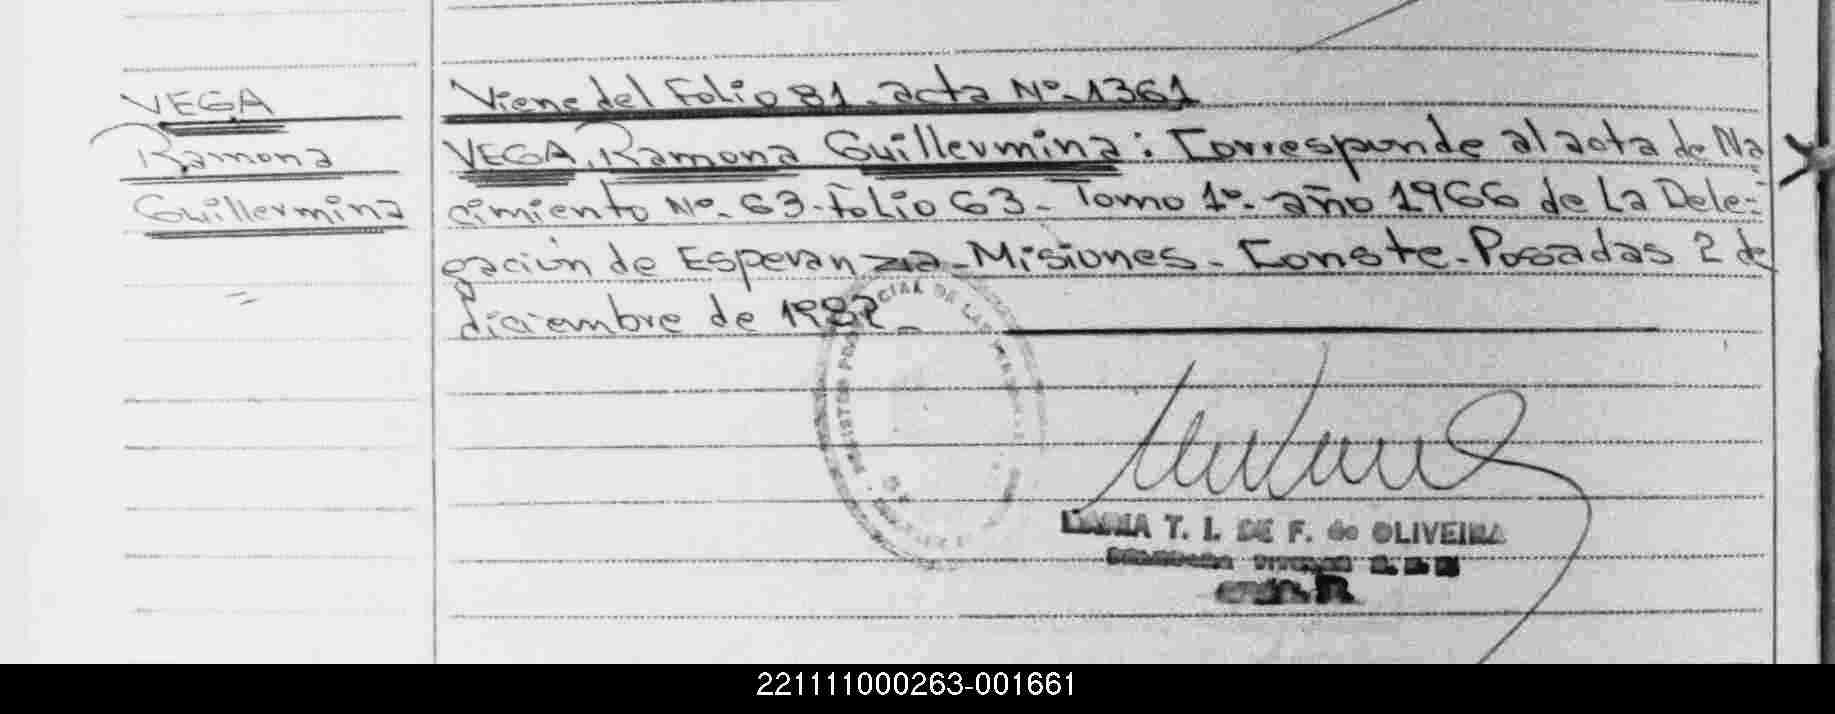 VEGA
Ramona
Guillermina
=
Viene del Folio 81. acta Nº-1361
VEGA, Ramona Guillermina: Corresponde al acta de Na
cimiento Nº- 63-Folio 63- Tomo 1º- año 1966 de La Dele-
gación de Esperanza-Misiones- Conste-Posadas 2 de
diciembre de 1982-
REGISTRO PROVINCIAL DE LAS PERSONAS
MARIA T. I. DE F. de OLIVEIRA
221111000263-001661